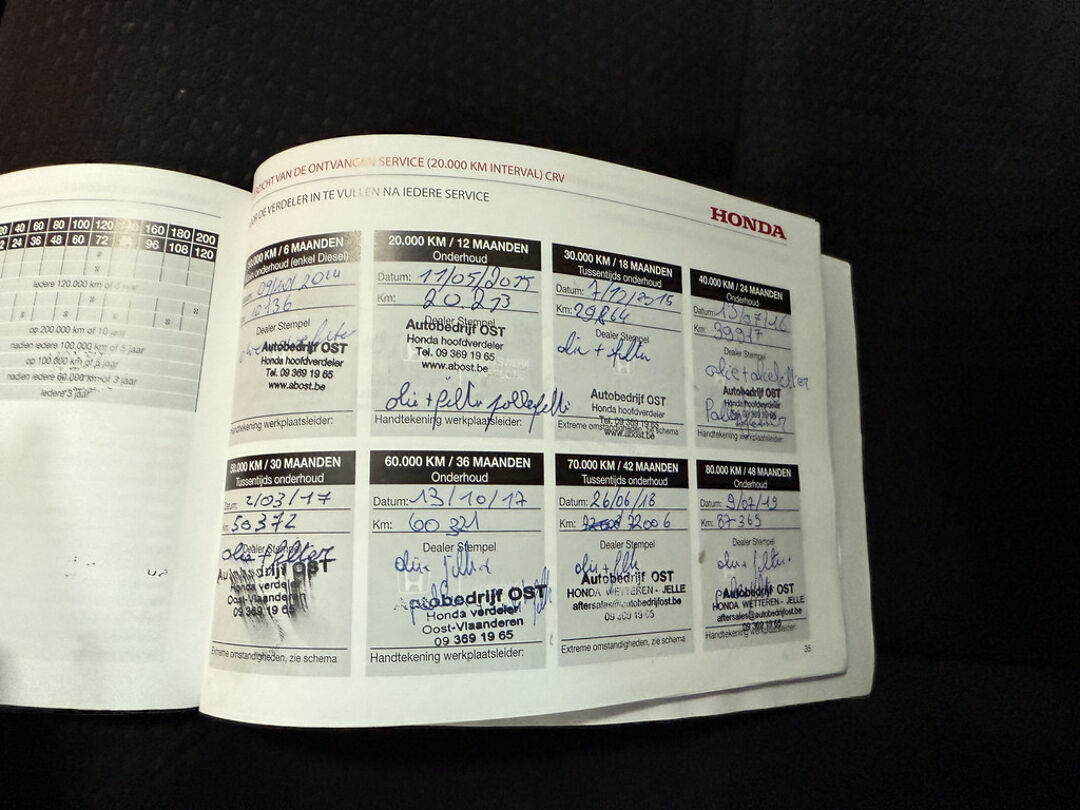 ZICHT VAN DE ONTVANGEN SERVICE (20.000 KM INTERVAL) CRV
DE VERDELER IN TE VULLEN NA IEDERE SERVICE
HONDA
20 40 60 80 100 120 160 180 200
24 36 48 60 72 96 108 120
Iedere 120.000 km of
op 200.000 km of 10 jaar
nadien iedere 100.000 km of 5 jaar
op 100.000 km of jaar
nadien iedere 60.000 km of 3 jaar
Iedere 3 jaar
KM / 6 MAANDEN
onderhoud (enkel Diesel)
10736
Dealer Stempel
Autobedrijf OST
Honda hoofdverdeler
Tel. 09 369 19 65
www.abost.be
Handtekening werkplaatsleider:
20.000 KM / 12 MAANDEN
Onderhoud
Datum: 11/05/2015
Km: 20.213
Dealer Stempel
Autobedrijf OST
Honda hoofdverdeler
Tel. 09 369 19 65
www.abost.be
olie + filter
Handtekening werkplaatsleider:
30.000 KM / 18 MAANDEN
Tussentijds onderhoud
Datum: 7/12/2015
Km: 29864
Dealer Stempel
olie + filter
Autobedrijf OST
Honda hoofdverdeler
Tel. 09 369 19 65
www.abost.be
Extreme omstandigheden, zie schema
40.000 KM / 24 MAANDEN
Onderhoud
Datum: 13/07/16
Km: 39917
Dealer Stempel
Autobedrijf OST
Honda hoofdverdeler
Handtekening werkplaatsleider:
50.000 KM / 30 MAANDEN
Tussentijds onderhoud
2/03/17
50372
Dealer Stempel
olie + filter
Autobedrijf OST
Honda verdeler
Oost-Vlaanderen
09 369 19 65
Extreme omstandigheden, zie schema
60.000 KM / 36 MAANDEN
Onderhoud
Datum: 13/10/17
Km: 60321
Dealer Stempel
olie filter
Autobedrijf OST
Honda verdeler
Oost-Vlaanderen
09 369 19 65
Handtekening werkplaatsleider:
70.000 KM / 42 MAANDEN
Tussentijds onderhoud
Datum: 26/06/18
Km: 72006
Dealer Stempel
Autobedrijf OST
HONDA WETTEREN - JELLE
aftersales@autobedrijfost.be
09 369 19 65
Extreme omstandigheden, zie schema
80.000 KM / 48 MAANDEN
Onderhoud
Datum: 9/07/19
Km: 87365
Dealer Stempel
Autobedrijf OST
HONDA WETTEREN - JELLE
aftersales@autobedrijfost.be
09 369 19 65
Handtekening werkplaatsleider:
35